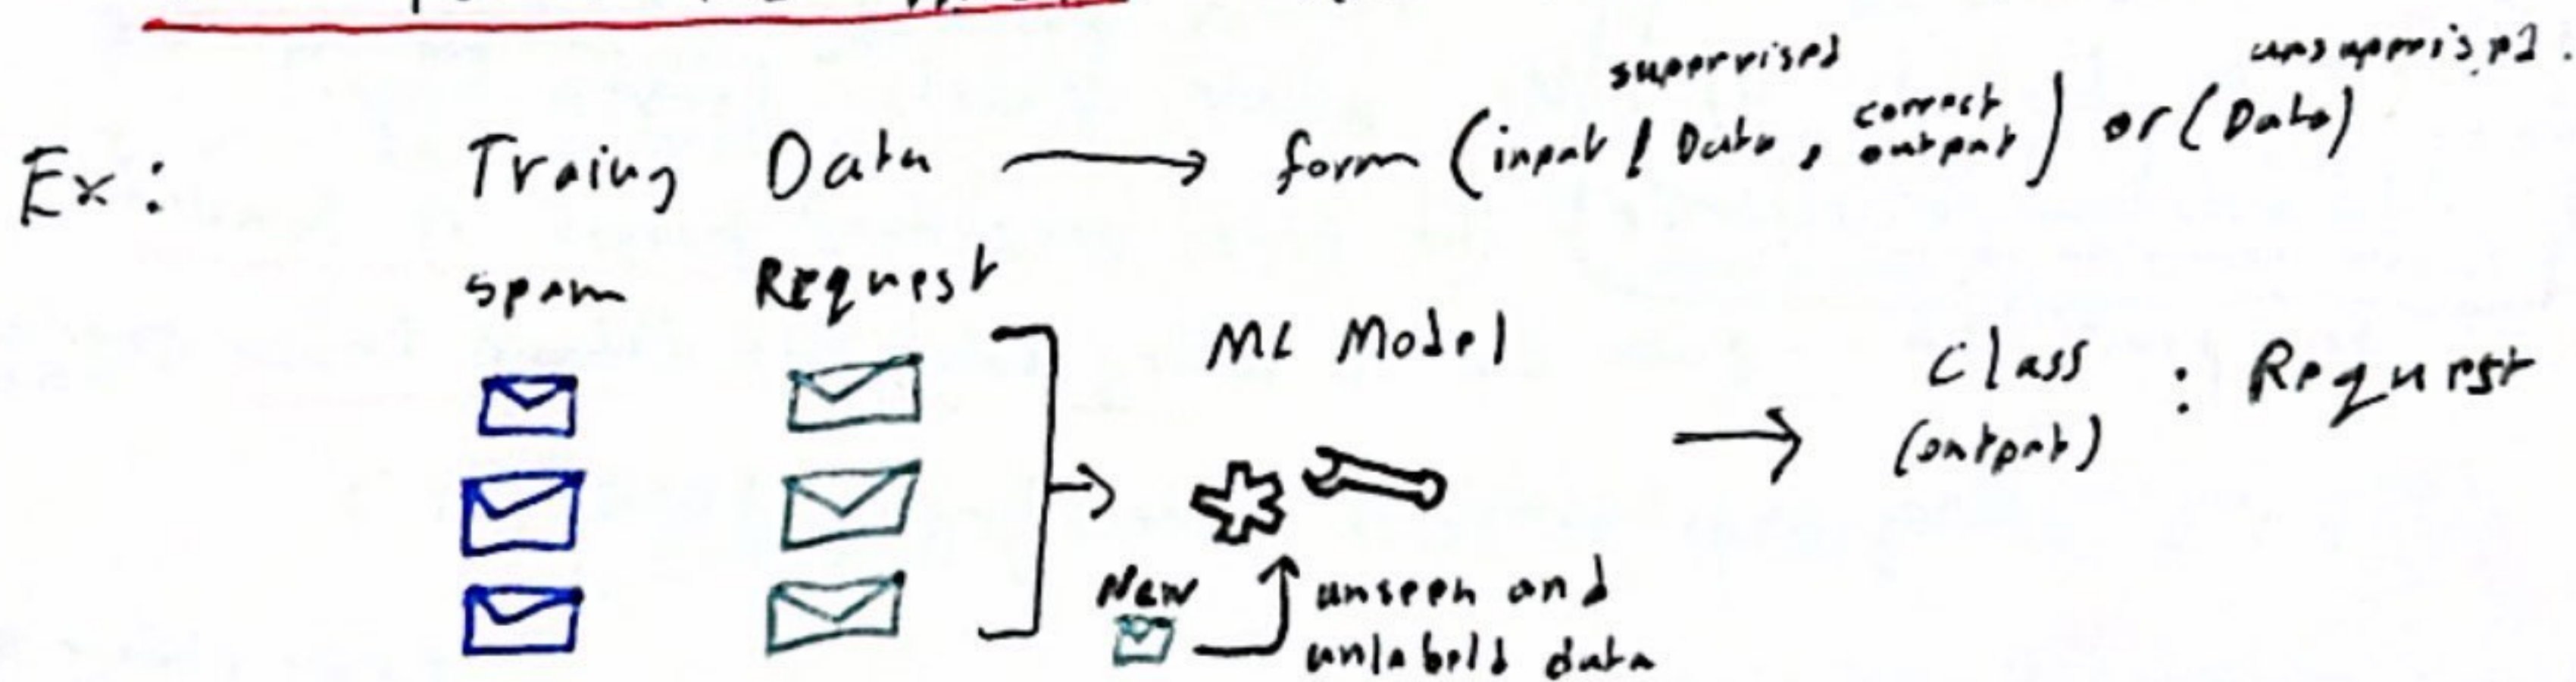 supervised unsupervised.
Ex: Traing Data → form (input / Data, correct output) or (Data)
spam Request
ML Model
Class : Request
(output)
New unseen and
unlabeld data